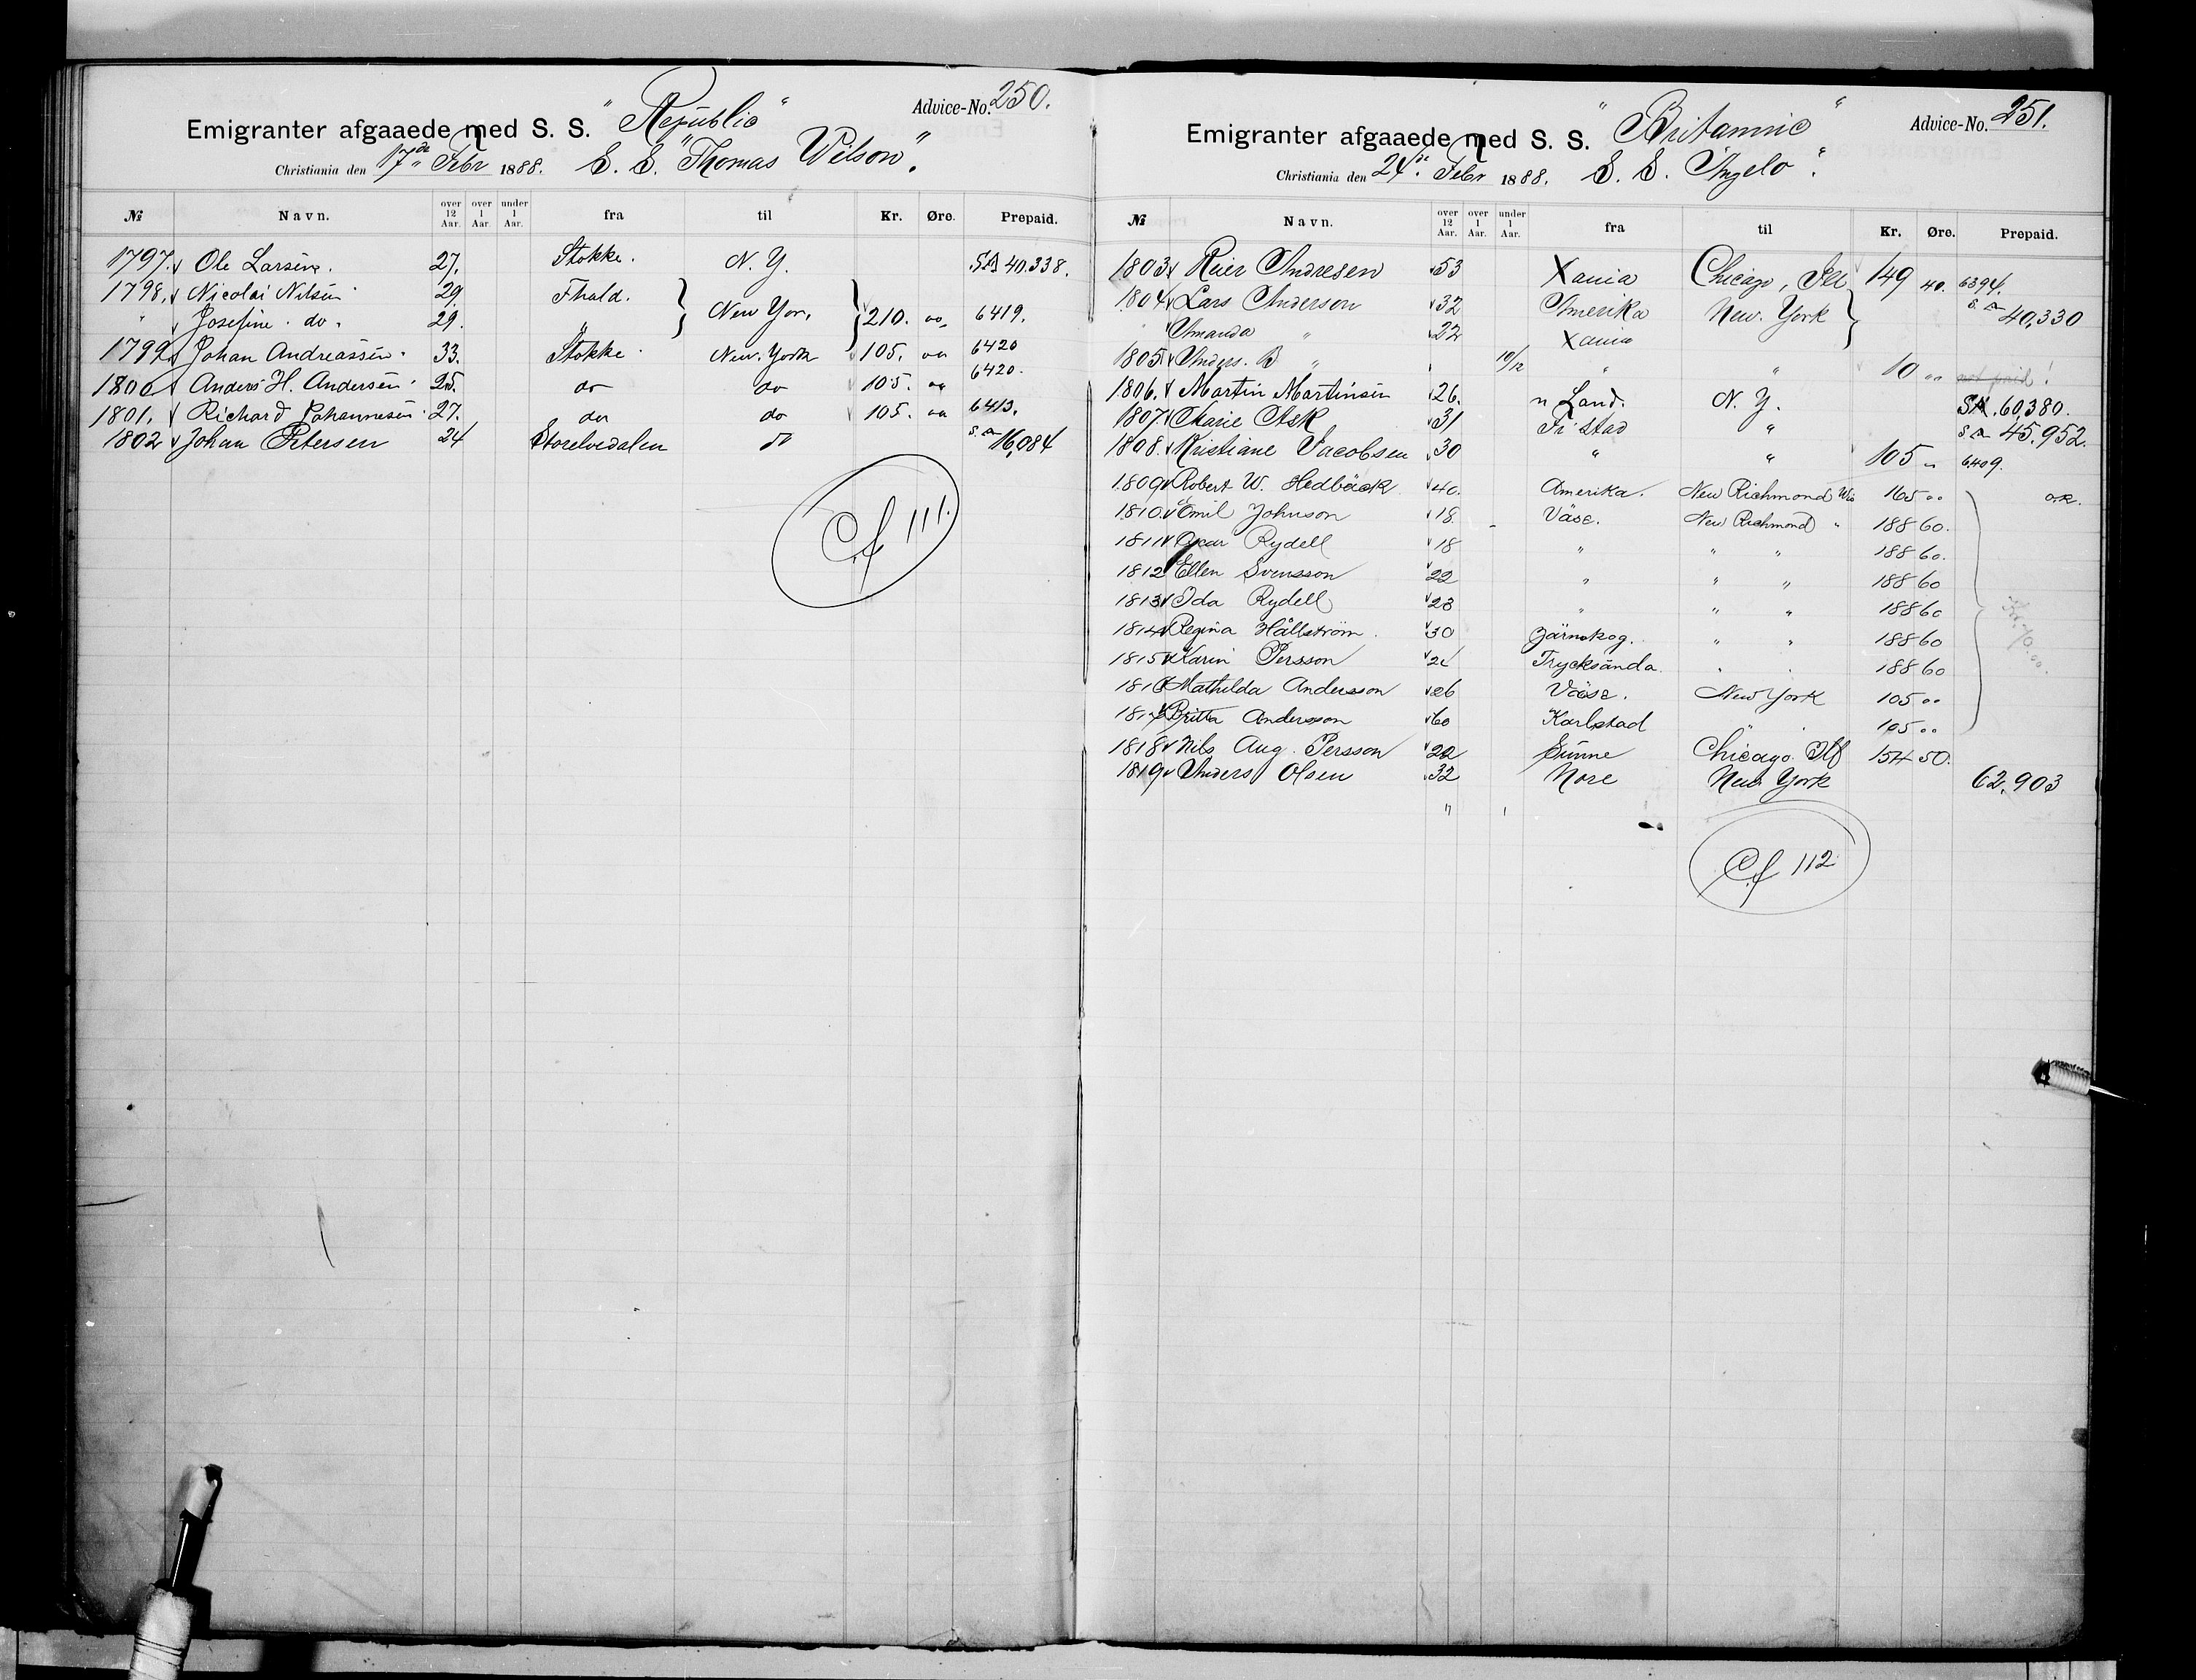 Emigranter afgaaede med S. S. "Republic" Advice-No. 250.
Christiania den 17de Febr 1888. S. S. "Thomas Wilson".
№ Navn. over 12 Aar. over 1 Aar. under 1 Aar. fra til Kr. Øre. Prepaid.
1797. Ole Larsen. 27. Stokke. N. Y. SA 40.338.
1798. Nicolai Nilsen 29. Fhald. } New Yor. } 210. oo. 6419.
" Josefine do. 29. "
1799. Johan Andreassen. 33. Stokke. New. York 105. oo 6420
1800 Anders H. Andersen. 25. do do 105. oo 6420.
1801. Richard Johannesen. 27. do do 105. oo 6413.
1802 Johan Petersen 24 Storelvedalen do S. A 16,084
Cf 111.
Emigranter afgaaede med S. S. "Britannic" Advice-No. 251.
Christiania den 24de Febr 1888. S. S. "Angelo".
№ Navn. over 12 Aar. over 1 Aar. under 1 Aar. fra til Kr. Øre. Prepaid.
1803 Reier Andresen 53 Xania Chicago, Ill 149 40. 6394.
1804 Lars Anderson 32 Amerika New. York } S. A 40,330
" Amanda " 22 Xania
1805 Anders. B " 10/12 " " 10 " not paid!
1806. Martin Martinsen 26. n Land. N. Y. SA. 60,380.
1807. Marie Ask 31 Fr Stad " S A 45,952.
1808. Kristiane Jacobsen 30 " " 105 " 6409.
1809 Robert W. Hedbäck 40. Amerika. New Richmond Wis 165 " o.k.
1810. Emil Johnson 18. Väse. New Richmond " 188 60.
1811 Oscar Rydell 18 " " " 188 60.
1812 Ellen Svensson 22 " " " 188 60
1813 Ida Rydell 23 " " " 188 60
1814 Regina Hållström. 30 Järnskog. " " 188 60
1815 Karin Persson 21 Trycksända. " " 188 60
1816 Mathilda Andersson 26 Väse. New York 105 "
1817 Britta Andersson 60 Karlstad " " 105 "
1818 Nils Aug. Persson 22 Sunne Chicago Ill 154 50.
1819 Anders Olsen 32 Nore New York 62,903
Cf 112